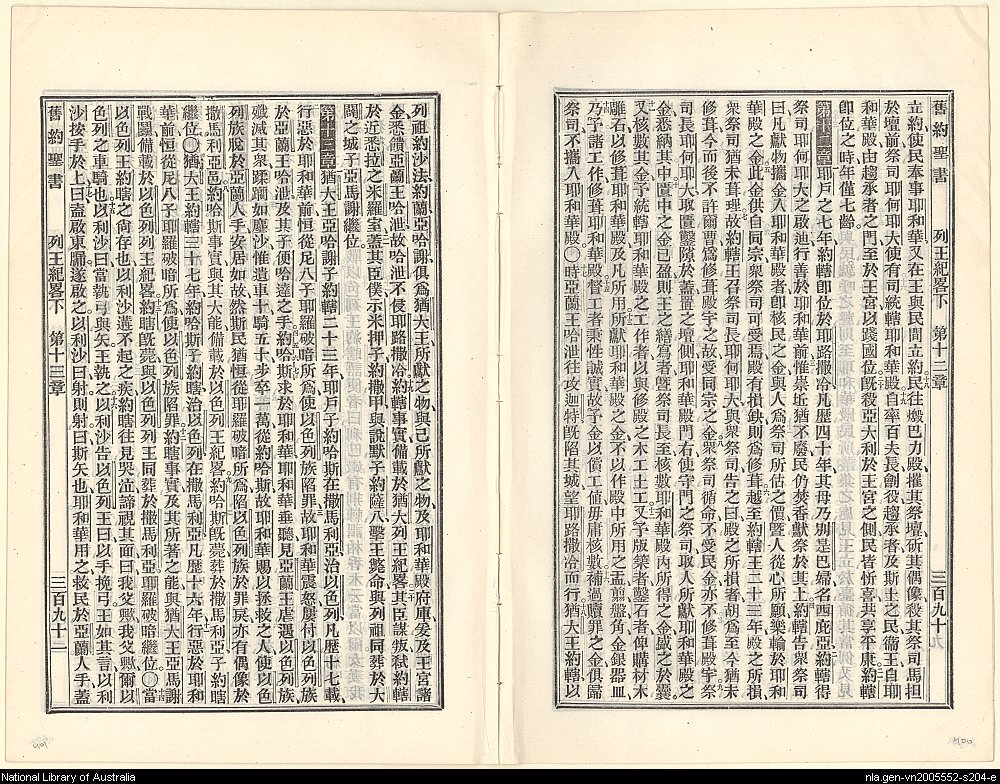 舊約聖書　列王紀畧下　第十二章　三百九十
立約使民奉事耶和華又在王與民間立約民往燬巴力殿摧其祭壇斫其偶像殺其祭司馬担
於壇前祭司耶何耶大使有司統轄耶和華殿自率百夫長劊役趨承者及斯土之民衞王自耶
和華殿由趨承者之門至於王宮以踐國位旣殺亞大利於王宮之側民皆忻喜共享平康約轄
卽位之時年僅七齡
第十二章耶戶之七年約轄卽位於耶路撒冷凡歷四十年其母乃別是巴婦名西庇亞約轄得
祭司耶何耶大之啟迪行善於耶和華前惟崇坵猶不廢民仍焚香獻祭於其上約轄告衆祭司
曰凡獻物攜金入耶和華殿者卽核民之金與人爲祭司所估之價曁人從心所願樂輸於耶和
華殿之金此金供自同宗衆祭司可受焉殿有損缺則爲修葺越至約轄王二十三年殿之所損
衆祭司猶未葺理故約轄王召祭司長耶何耶大與衆祭司告之曰殿之所損者胡爲至今猶未
修葺今而後不許爾曹爲修葺殿宇之故受同宗之金衆祭司循命不受民金亦不修葺殿宇祭
司長耶何耶大取匱鑿隙於蓋置之壇側耶和華殿門右使守門之祭司取人所獻耶和華殿之
金悉納其中匱中之金已盈則王之繕寫者曁祭司長至核數耶和華殿內所得之金盛之於囊
又核數其金予統轄耶和華殿之工作者以與修耶和華殿之木工土工又予版築者鑿石者俾購材木
雕石以修葺耶和華殿及凡所用所獻耶和華殿之金不以作殿中所用之盂剪盤角金銀器皿
乃予諸工作修葺耶和華殿督工者秉性誠實故予金以償工值毋庸核數補過贖罪之金俱歸
祭司不攜入耶和華殿〇時亞蘭王哈泄往攻迦特旣陷其城望耶路撒冷而行猶大王約轄以
列祖約沙法約蘭亞哈謝俱爲猶大王所獻之物與己所獻之物及耶和華殿府庫安及王宮諸
金悉饋亞蘭王哈泄故哈泄不侵耶路撒冷約轄事實備載於猶大列王紀畧其臣謀叛弒約轄
於近悉拉之米羅室蓋其臣僕示米押子約撒甲與說默子約薩八擊王斃命與列祖同葬於大
闢之城子亞馬謝繼位
第十三章猶大王亞哈謝子約轄二十三年耶戶子約哈斯在撒馬利亞治以色列凡歷十七載
行惡於耶和華前恒從尼八子耶羅破暗所爲使以色列族陷罪故耶和華震怒屢付以色列族
於亞蘭王哈泄及其子便哈達之手約哈斯求於耶和華耶和華垂聽見亞蘭王虐遇以色列族
殲滅其衆蹂躪如塵沙惟遺車十騎五十步至一萬從約哈斯故耶和華賜以拯救之人使以色
列族脫於亞蘭人手安居如故然斯民猶恒從耶羅破暗所爲陷以色列族於罪戾亦有偶像於
撒馬利亞邑約哈斯事實與其大能備載於以色列王紀畧約哈斯旣薨葬於撒馬利亞子約瞎
繼位〇猶大王約轄三十七年約哈斯子約瞎治以色列在撒馬利亞凡歷十六年行惡於耶和
華前恒從尼八子耶羅破暗所爲使以色列族陷罪約瞎事實及其所著之能與猶大王亞馬謝
戰鬭備載於以色列列王紀畧約瞎旣薨與以色列列王同葬於撒馬利亞耶羅破暗繼位〇當
以色列王約瞎之尙存也以利沙遘不起之疾約瞎往見哭泣諦視其面曰我父歟我父歟爾以
色列之車騎也以利沙曰當執弓與矢王執之以利沙告以色列王曰以手挽弓王如其言以利
沙按手於上曰盍啟東牖遂啟之以利沙曰射則射曰斯矢也耶和華用之救民於亞蘭人手蓋
舊約聖書　列王紀畧下　第十三章　三百九十一
400
401
National Library of Australia
nla.gen-vn2005552-s204-e